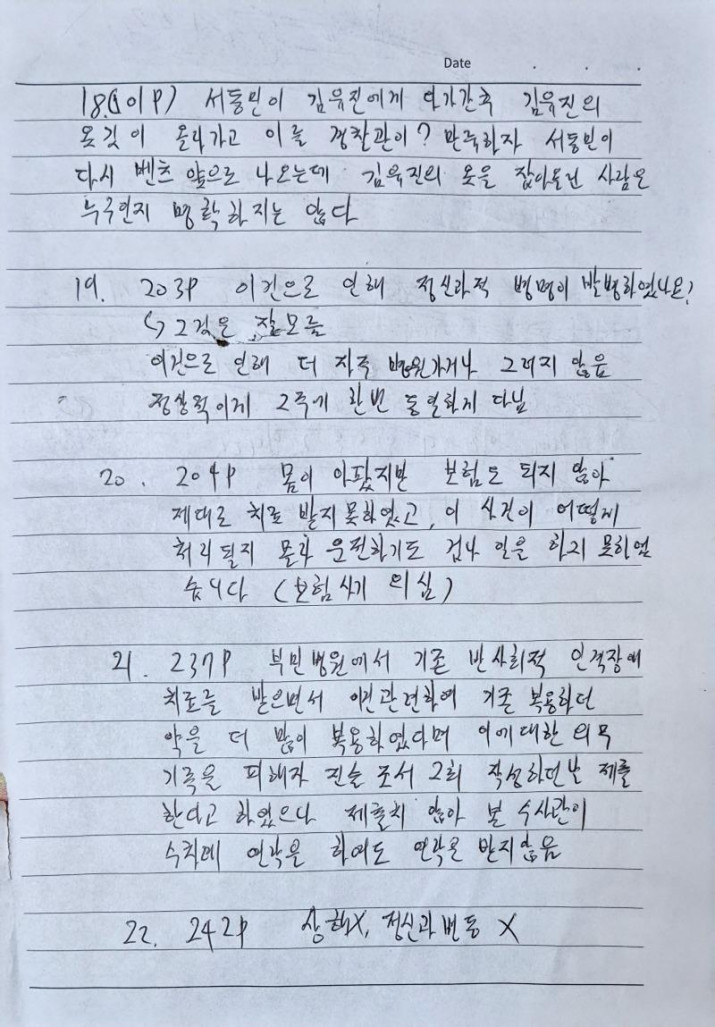 Date
18. 서동민이 김유진에게 다가간 후 김유진의
옷깃이 올라가고 이를 경찰관이? 만류하자 서동민이
다시 벤츠 앞으로 나오는데 김유진의 옷을 잡아올린 사람은
누구인지 명확하지는 않다
19. 203P 이건으로 인해 정신과적 병명이 발병하였나요?
↳ 그것은 잘모름
이건으로 인해 더 자주 병원가거나 그러지 않음
정상적이게 2주에 한번 동일하게 다님
20. 204P 몸이 아팠지만 보험도 되지 않아
제대로 치료 받지 못하였고, 이 사건이 어떻게
처리될지 몰라 운전하기도 겁나 일을 하지 못하였
습니다 (보험사기 의심)
21. 237P 부민병원에서 기존 반사회적 인격장애
치료를 받으면서 이건관련하여 기존 복용하던
약을 더 많이 복용하였다며 이에대한 의무
기록을 피해자 진술 조서 2회 작성하던날 제출
한다고 하였으나 제출치 않아 본 수사관이
수차례 연락을 하여도 연락을 받지않음
22. 242P 상해X, 정신과변동 X